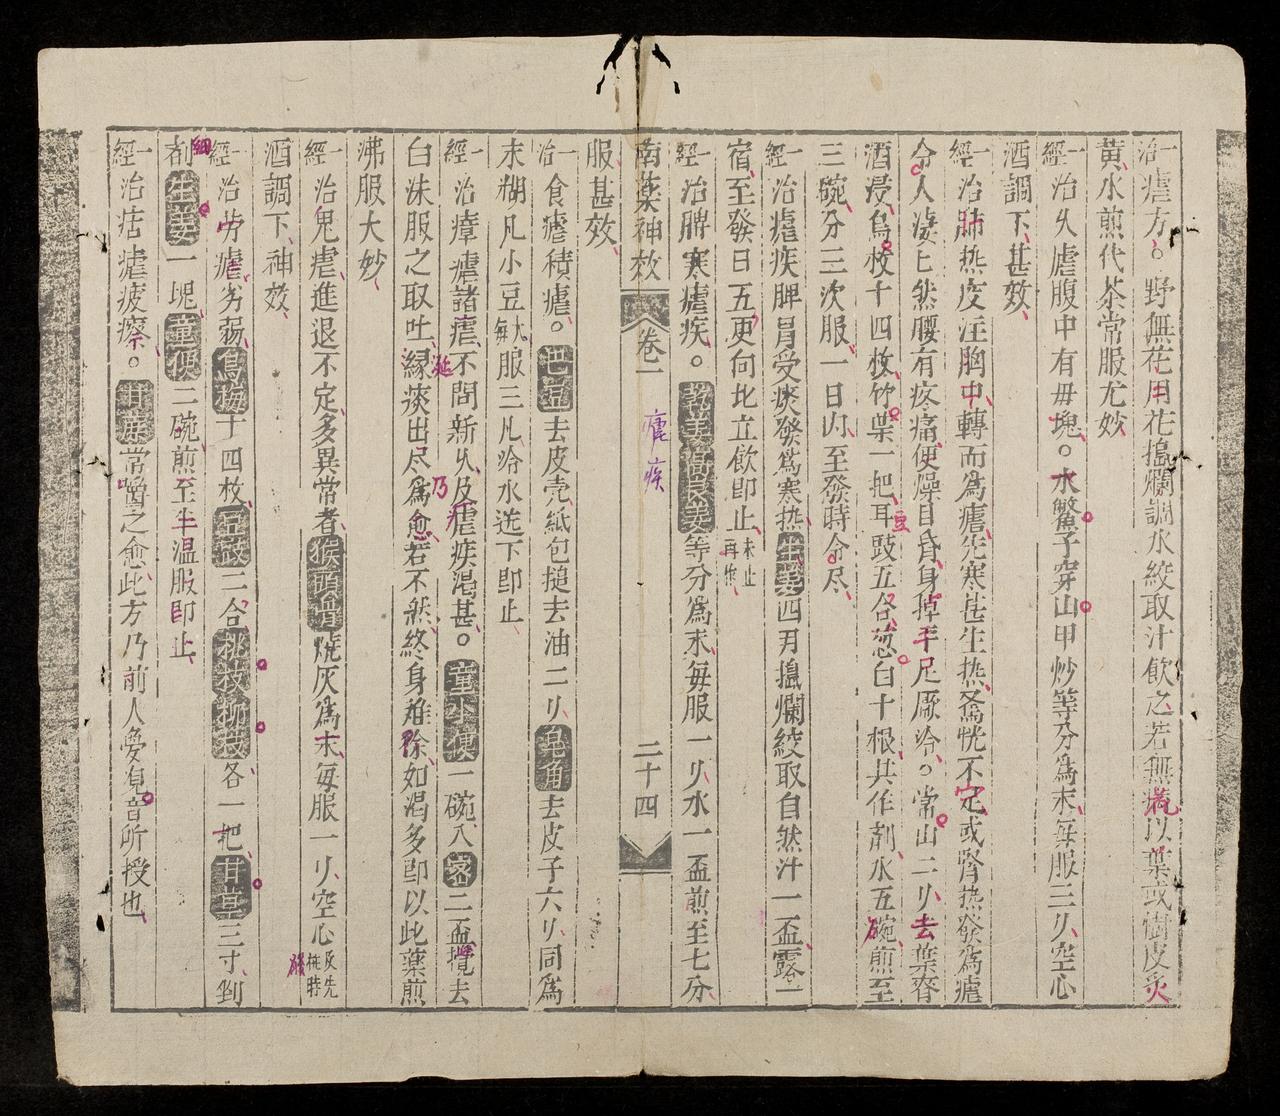 一治瘧方。野無花用花搗爛調水絞取汁飲之若無以葉或樹皮炙
黃水煎代茶常服尤妙
一經治久瘧腹中有母塊。水鱉子穿山甲炒等分為末每服三刂空心
酒調下甚效
一經治肺热疫注胸中轉而為瘧先寒甚生热恍不定或腎热發為瘧
令人淒匕然腰有疼痛便燥目昏身掉手足厥冷。常山二刂去葉脊
酒浸烏枚十四枚竹葉一把耳豉五合葱白十根共作剤水五碗煎至
三碗分三次服一日内至發時令尽
一經治瘧疾脾胃受痰發為寒热生姜四月搗爛絞取自然汁一盃露一
宿至發日五更向北立飲即止未止再作
一經治脾寒瘧疾。乾姜高良姜等分為末每服一刂水一盃煎至七分
南藥神效 卷一 瘧疾 二十四
服甚效
一治食瘧積瘧。巴豆去皮壳紙包搥去油二刂皂角去皮子六刂同為
末糊凡小豆大每服三凡冷水送下即止
一經治瘴瘧諸瘧不問新久及瘧疾渴甚。童小便一碗入密三盃攪去
白沫服之取吐緣痰出尽為愈若不然終身难除如渴多即以此藥煎
沸服大妙
一經治鬼瘧進退不定多異常者猴頭骨燒灰為末每服一刂空心及先發時
酒調下神效
一經治労瘧劣弱烏梅十四枚豆豉二合桃枝柳枝各一把甘草三寸剉
剤生姜一塊童便二碗煎至半温服即止
一經治痁瘧疲瘵。甘蔗常嚼之愈此方乃前人夢見音所授也